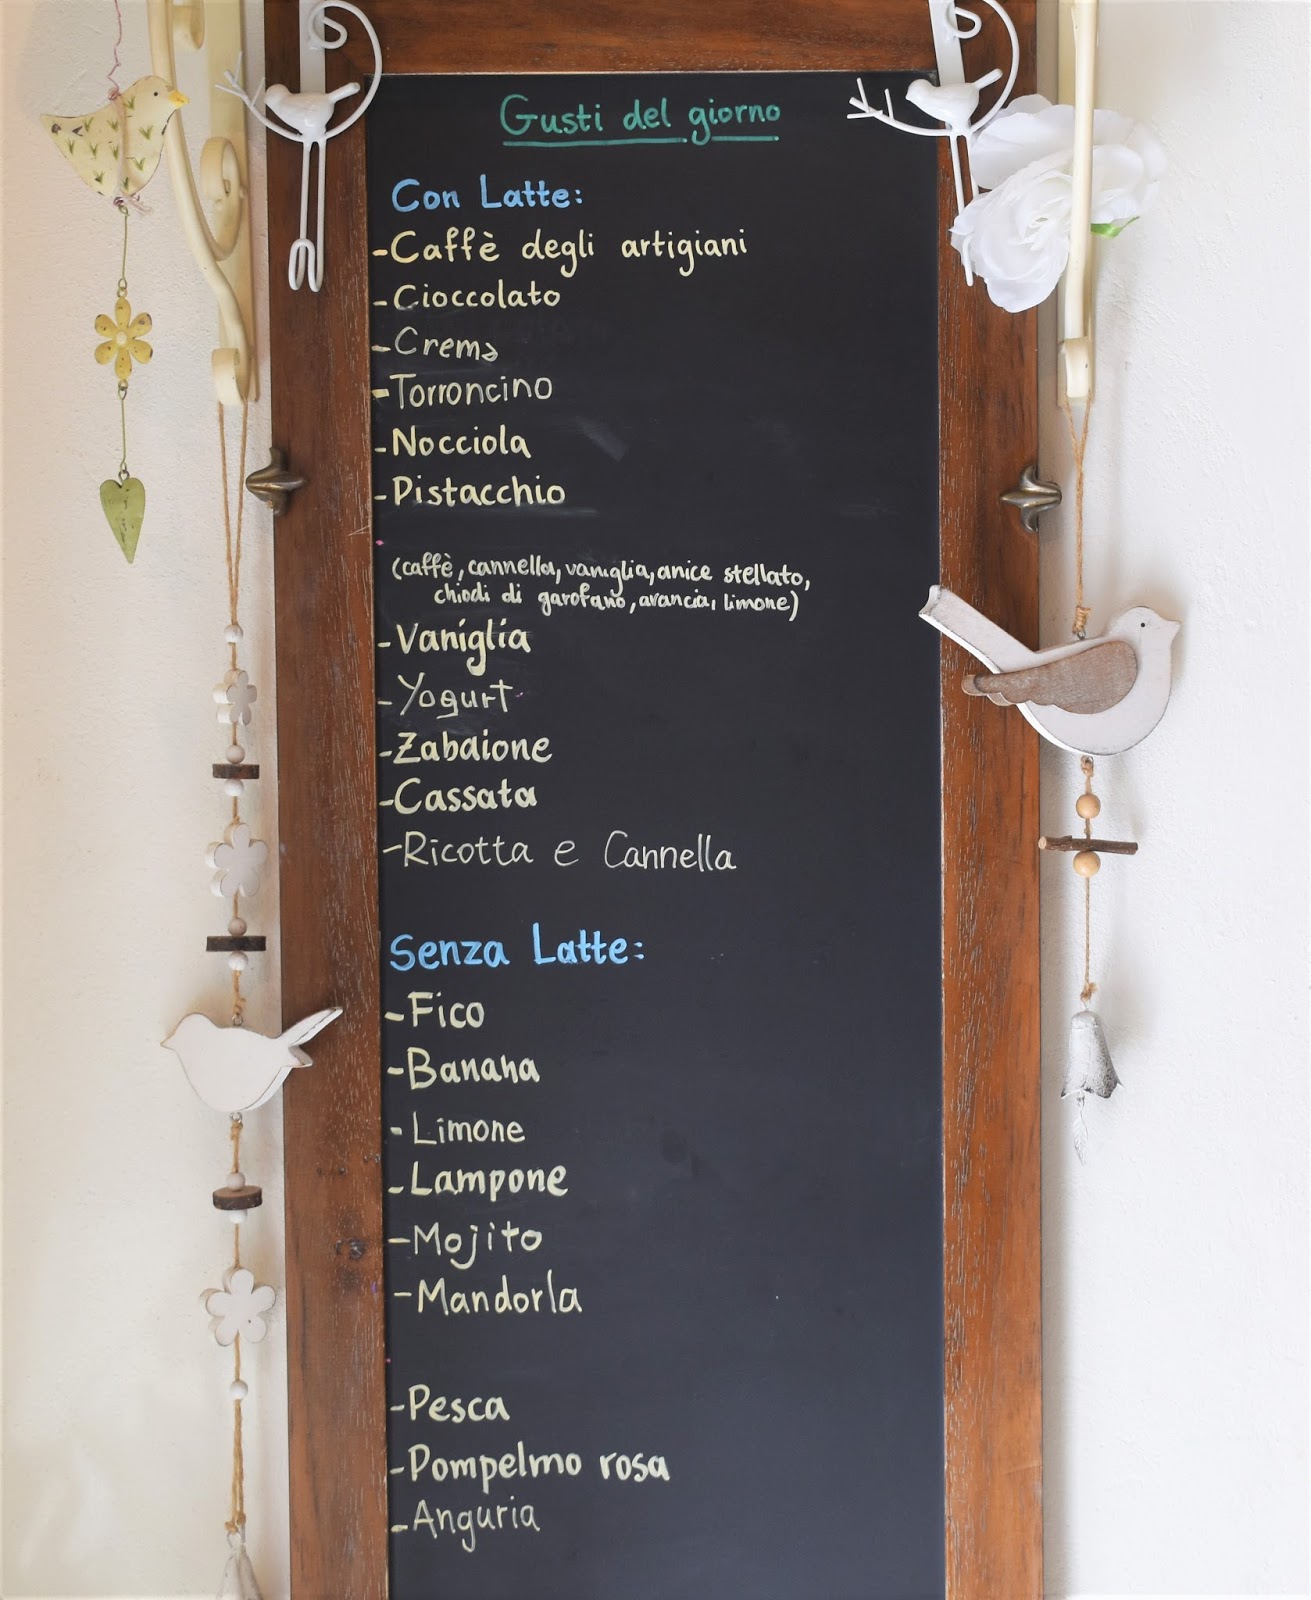 Gusti del giorno
Con Latte:
-Caffè degli artigiani
-Cioccolato
-Crema
-Torroncino
-Nocciola
-Pistacchio
(caffè, cannella, vaniglia, anice stellato,
chiodi di garofano, arancia, limone)
-Vaniglia
-Yogurt
-Zabaione
-Cassata
-Ricotta e Cannella
Senza Latte:
-Fico
-Banana
-Limone
-Lampone
-Mojito
-Mandorla
-Pesca
-Pompelmo rosa
-Anguria